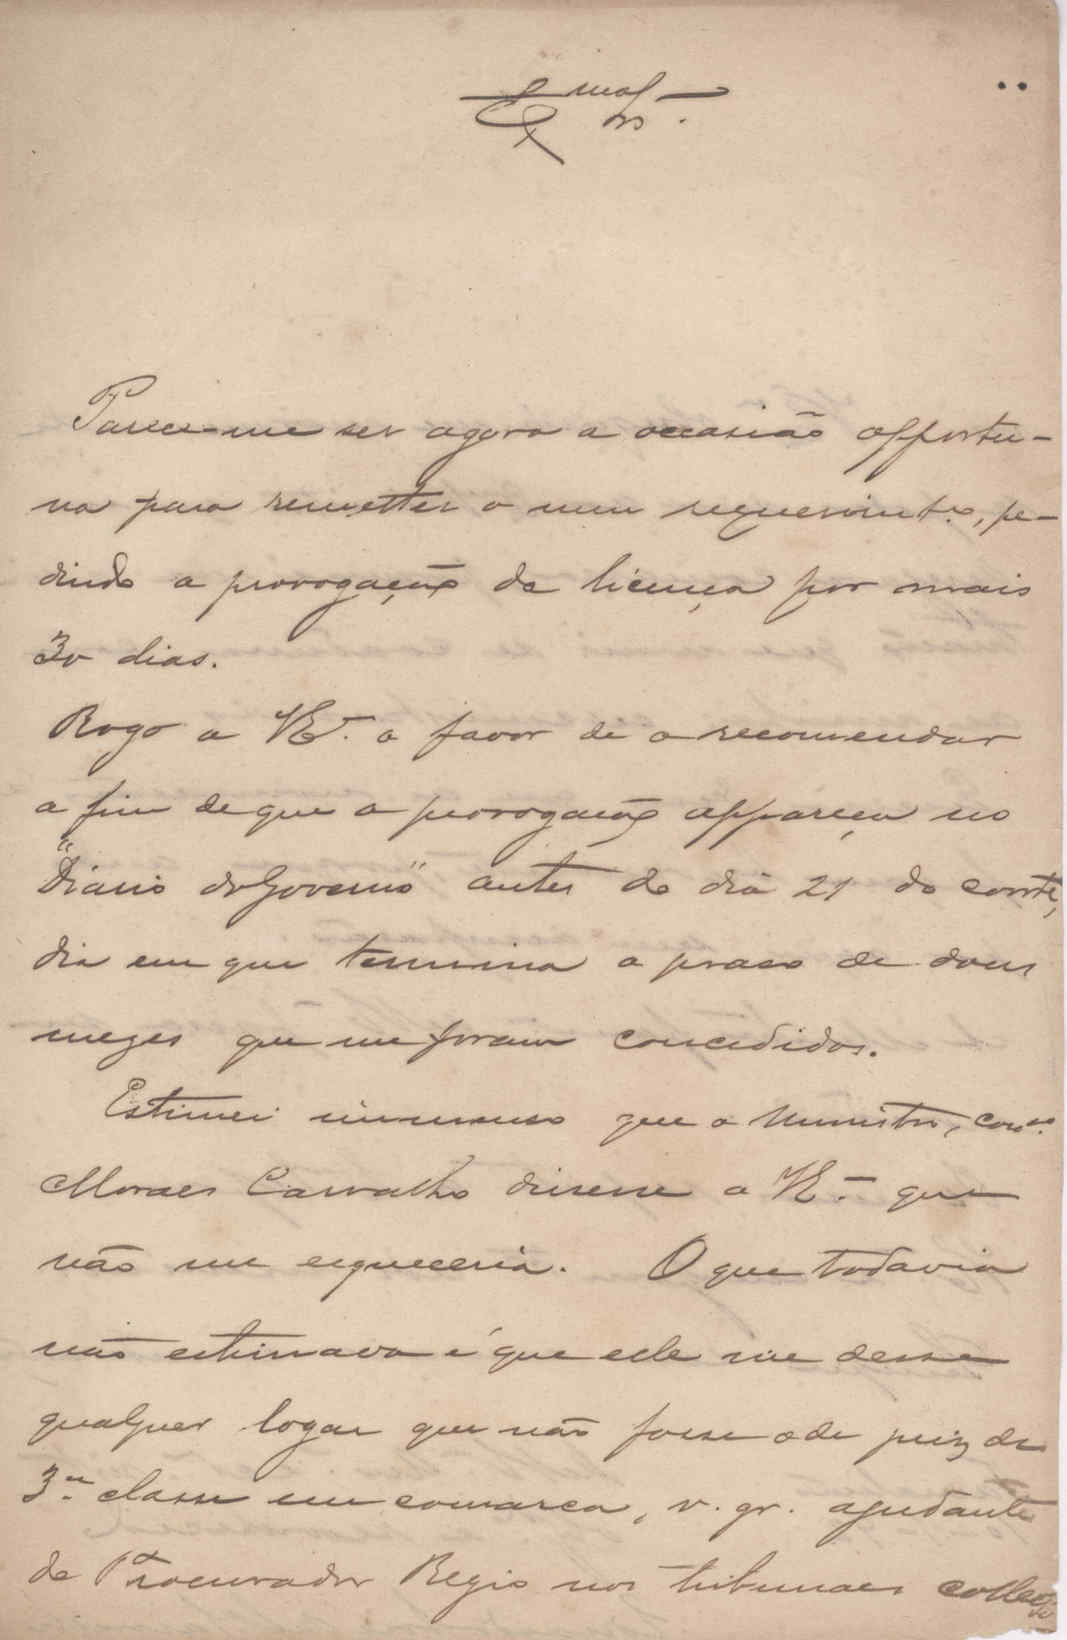 Parece-me ser agora a occasião opportu-
na para remetter o meu requerimto, pe-
dindo a prorogação da licença por mais
30 dias.
Rogo a VE.ª o favor de o recomendar
a fim de que a prorogação appareça no
"Diario do Governo" antes do dia 21 do corrte,
dia em que termina o praso de dous
mezes que me foram concedidos.
Estimei immenso que o Ministro, cons.º
Moraes Carvalho dissesse a VE.ª que
não me esqueceria. O que todavia
não estimava é que elle me desse
qualquer logar que não fosse o de juiz de
3.ª classe em comarca, v. gr. ajudante
de Procurador Regio nos tribunaes